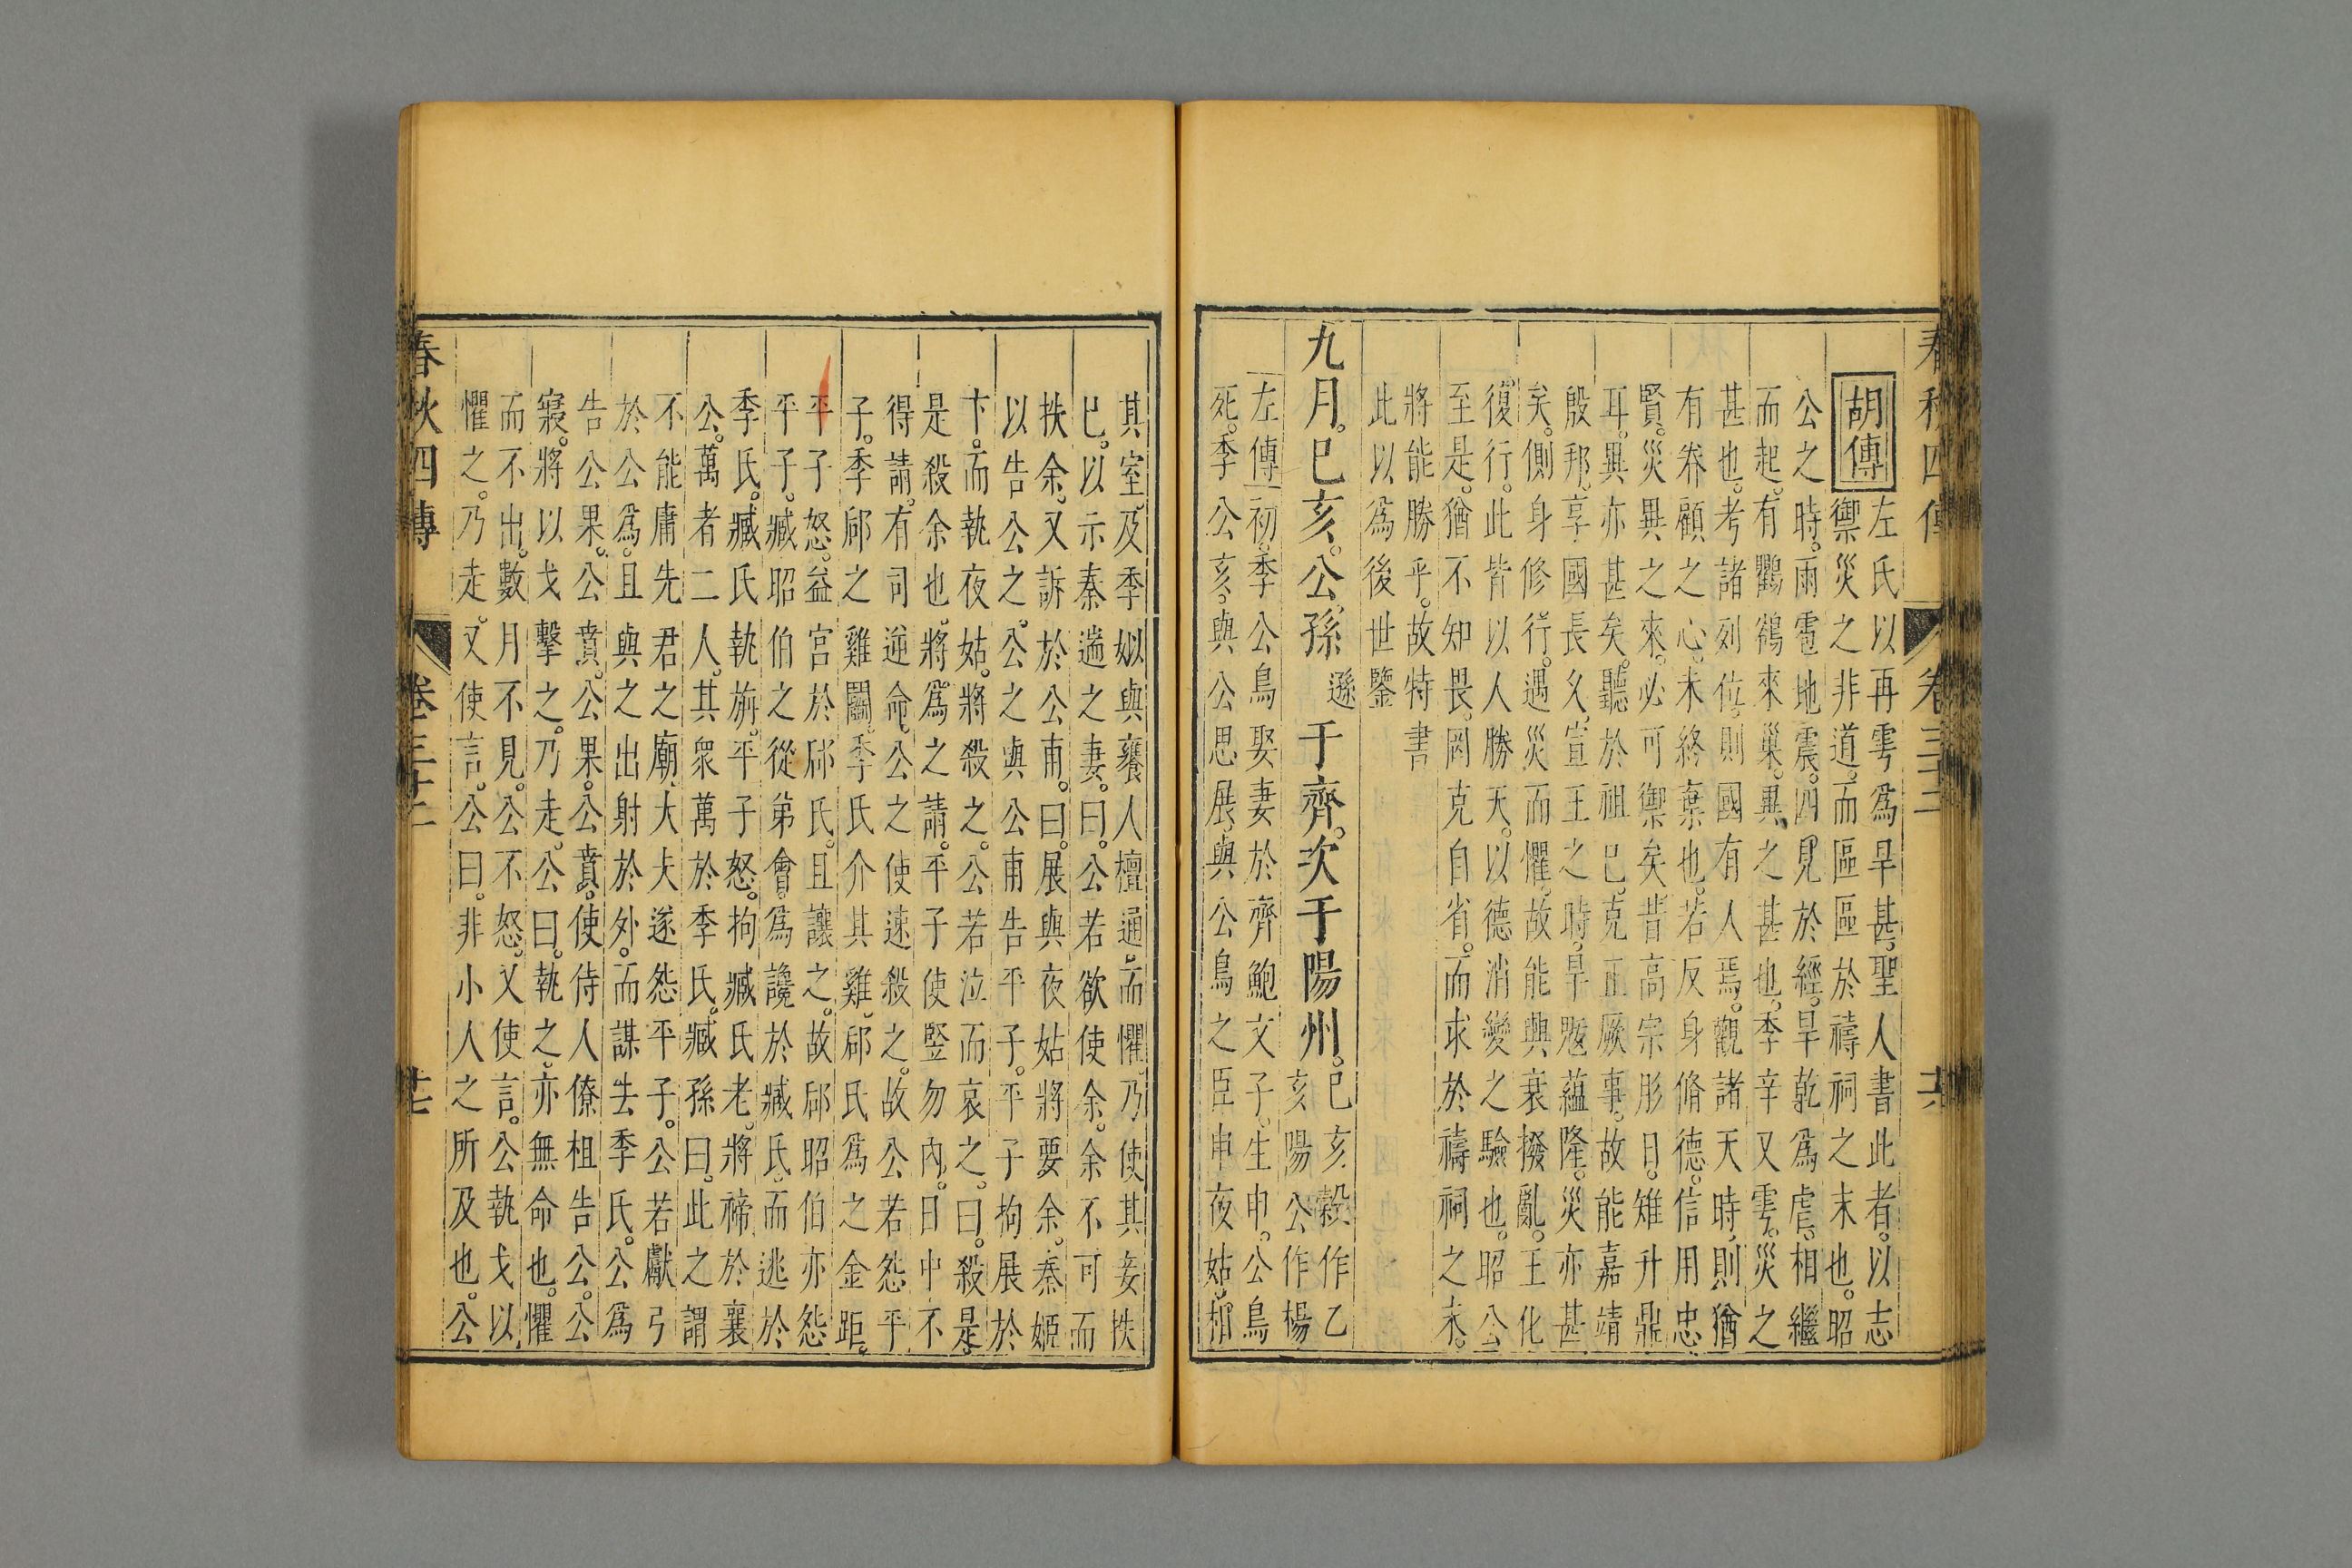 春秋四傳 卷三十二 十六
胡傳 左氏以再雩爲旱甚。聖人書此者。以志
禦災之非道。而區區於禱祠之末也。昭
公之時。雨雹地震。四見於經。旱乾爲虐。相繼
而起。有鸜鵒來巢。異之甚也。季辛又雩。災之
甚也。考諸列位。則國有人焉。觀諸天時。則猶
有眷顧之心。未終棄也。若反身脩德。信用忠
賢。災異之來。必可禦矣。昔高宗肜日。雉升鼎
耳。異亦甚矣。聽於祖巳。克正厥事。故能嘉靖
殷邦。享國長久。宣王之時。旱魃蘊隆。災亦甚
矣。側身修行。遇災而懼。故能興衰撥亂。王化
復行。此皆以人勝天。以德消變之驗也。昭公
至是。猶不知畏。罔克自省。而求於禱祠之末。
將能勝乎。故特書
此以爲後世鑒
九月。巳亥。公孫 遜 于齊。次于陽州。巳亥。穀作乙
亥陽公作楊
左傳 初。季公鳥娶妻於齊鮑文子。生申。公鳥
死。季公亥。與公思展。與公鳥之臣申夜姑。相
其室。及季姒與饔人檀通。而懼。乃使其妾抶
巳。以示秦遄之妻。曰。公若欲使余。余不可而
抶余。又訴於公甫。曰。展與夜姑將要余。秦姬
以告公之。公之與公甫告平子。平子拘展於
卞。而執夜姑。將殺之。公若泣而哀之。曰。殺是。
是殺余也。將爲之請。平子使豎勿內。日中不
得請。有司逆命。公之使速殺之。故公若怨平
子。季郈之雞鬬。季氏介其雞。郈氏爲之金距。
平子怒。益宮於郈氏。且讓之。故郈昭伯亦怨
平子。臧昭伯之從弟會。爲讒於臧氏。而逃於
季氏。臧氏執旃。平子怒。拘臧氏老。將禘於襄
公。萬者二人。其衆萬於季氏。臧孫曰。此之謂
不能庸先君之廟。大夫遂怨平子。公若獻弓
於公爲。且與之出射於外。而謀去季氏。公爲
告公果。公賁。公果。公賁。使侍人僚柤告公。公
寢。將以戈擊之。乃走。公曰。執之。亦無命也。懼
而不出。數月不見。公不怒。又使言。公執戈以
懼之。乃走。又使言。公曰。非小人之所及也。公
春秋四傳 卷三十二 十七